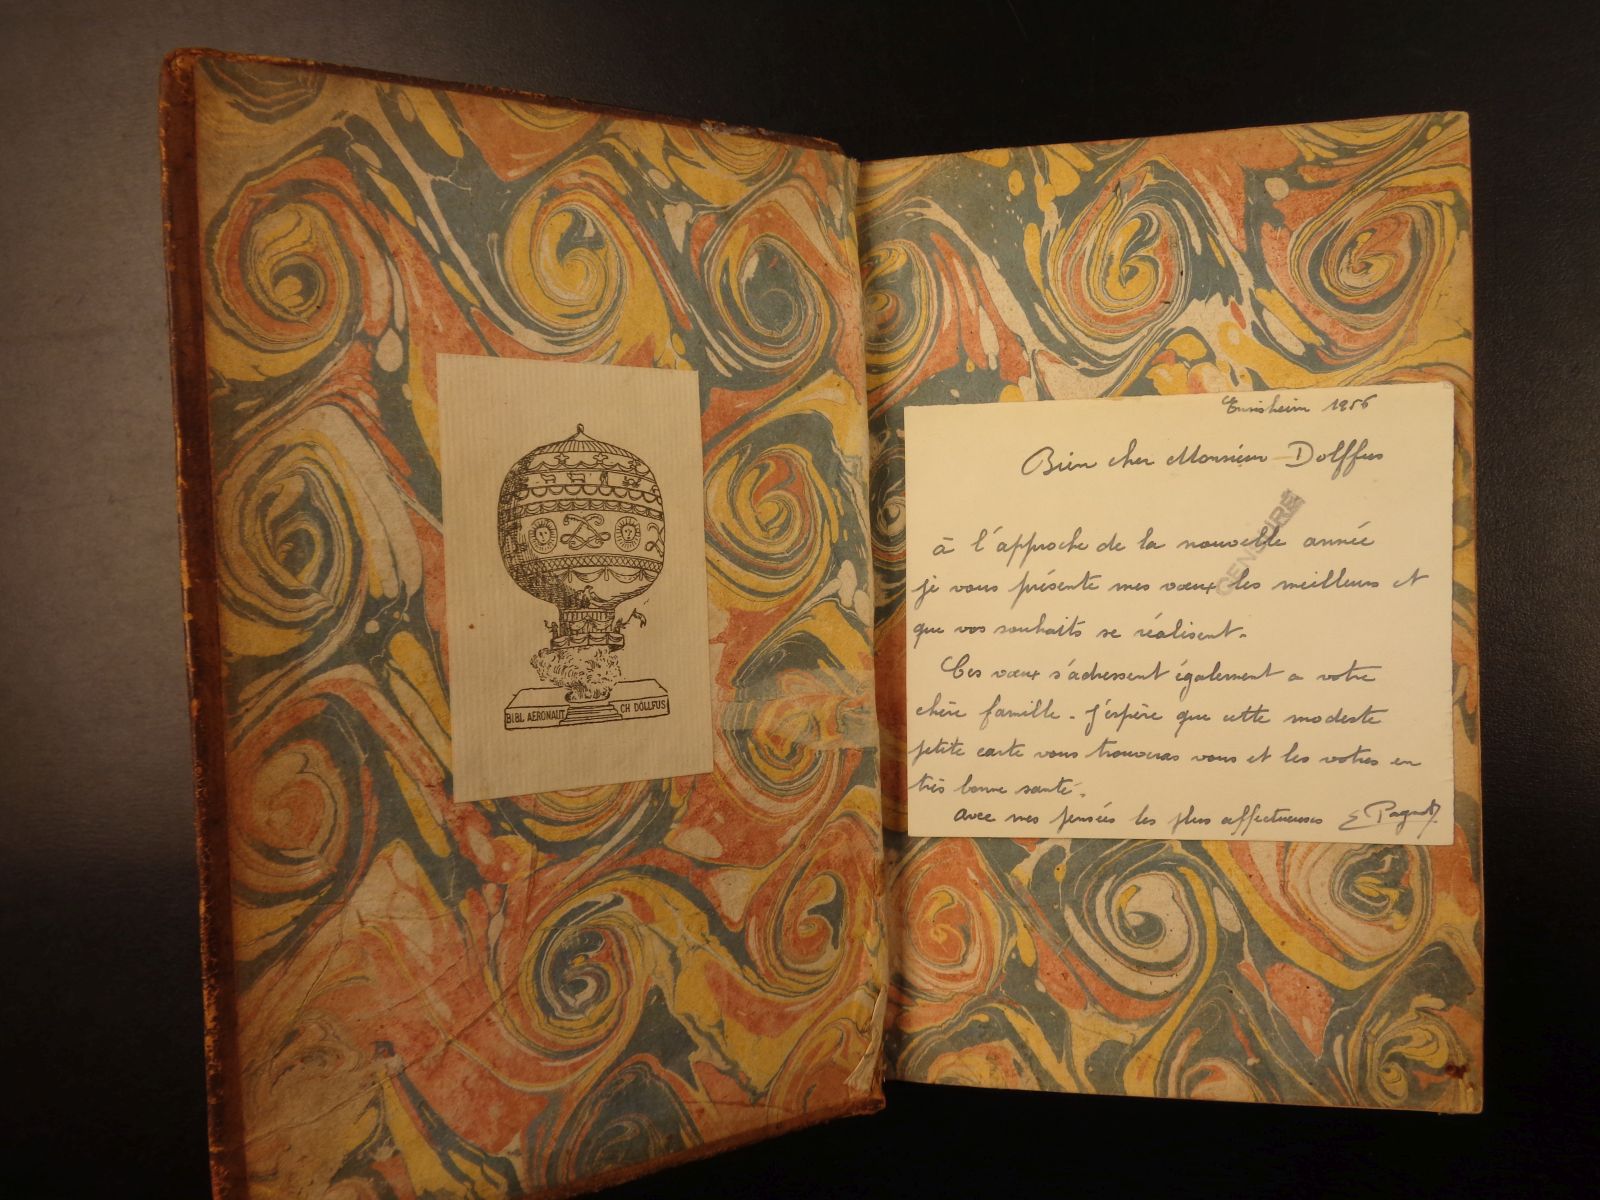 BIBL AERONAUT CH DOLLFUS
Ensisheim 1956
Bien cher Monsieur Dolffus
CENSURÉ
à l'approche de la nouvelle année
je vous présente mes vœux les meilleurs et
que vos souhaits se réalisent.
Ces vœux s'adressent également a votre
chère famille. J'espère que cette modeste
petite carte vous trouveras vous et les votres en
très bonne santé.
avec mes pensées les plus affectueuses E